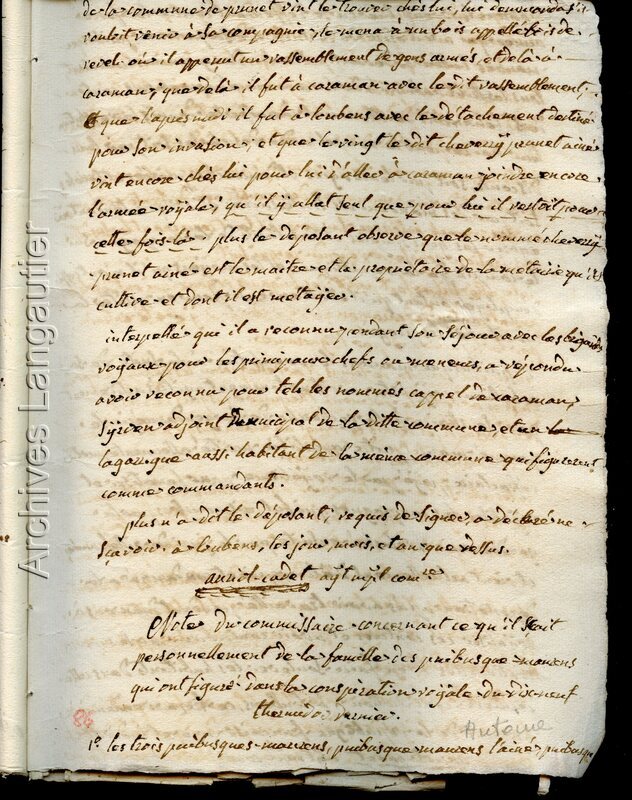 de la commune de prunet vint le trouver chès lui, lui demanda s'il
vouloit venir à sa compagnie, le mena à un bois appellé bois de
revel où il apperçut un rassemblement de gens armés, et de là à
caraman; que de là il fut à caraman avec le dit rassemblement,
et que l'après midi il fut à loubens avec le détachement destiné
pour son invasion; et que le vingt le dit cheverry prunet ainé
vint encore chès lui pour lui d'aller à caraman joindre encore
l'armée royale; qu'il y allat seul que pour lui il restoit pour
cette fois-là. plus le déposant observe que le nommé cheverry
prunet ainé est le maitre et le propriétaire de la métairie qu'il
cultive et dont il est metayer.
interpellé qui il a reconnu pendant son séjour avec les brigands
royaux pour les principaux chefs ou meneurs, a répondu
avoir reconnu pour tels les nommés cappel de caraman,
adjoint municipal de la ditte commune, et un
lagarrigue aussi habitant de la même commune qui figurerent
comme commandants.
plus n'a dit le déposant; requis de signer, a déclaré ne
sçavoir. à loubens, les jour, mois, et an que dessus.
auriol-cadet
Note du commissaire concernant ce qu'il sçait
personnellement de la famille des puibusque maurens
qui ont figuré dans la conspiration royale du dixneuf
thermidor dernier.
1º. les trois puibusques-maurens, puibusque maurens l'ainé, puibusque
Antoine
86
Archives Langautier